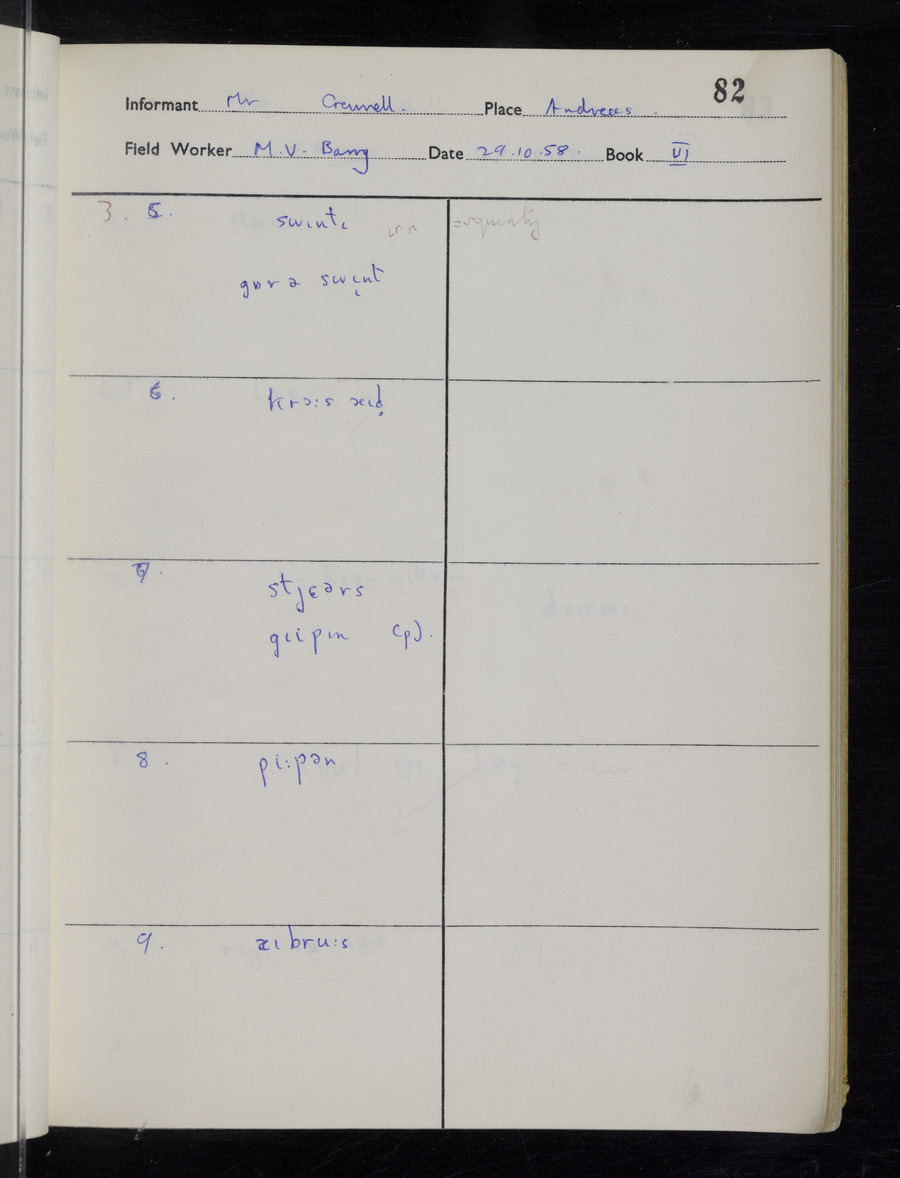 82
Informant Mr Crennell. Place Andreas.
Field Worker M.V. Barry Date 29.10.58. Book VI
3. 5. swintɪ =squinty
gɒr ə swɪnt
6. krɔ:s æɪd
7. stʃɛərs
gɪipɪn (p).
8. pi:pən
9. æɪbru:s